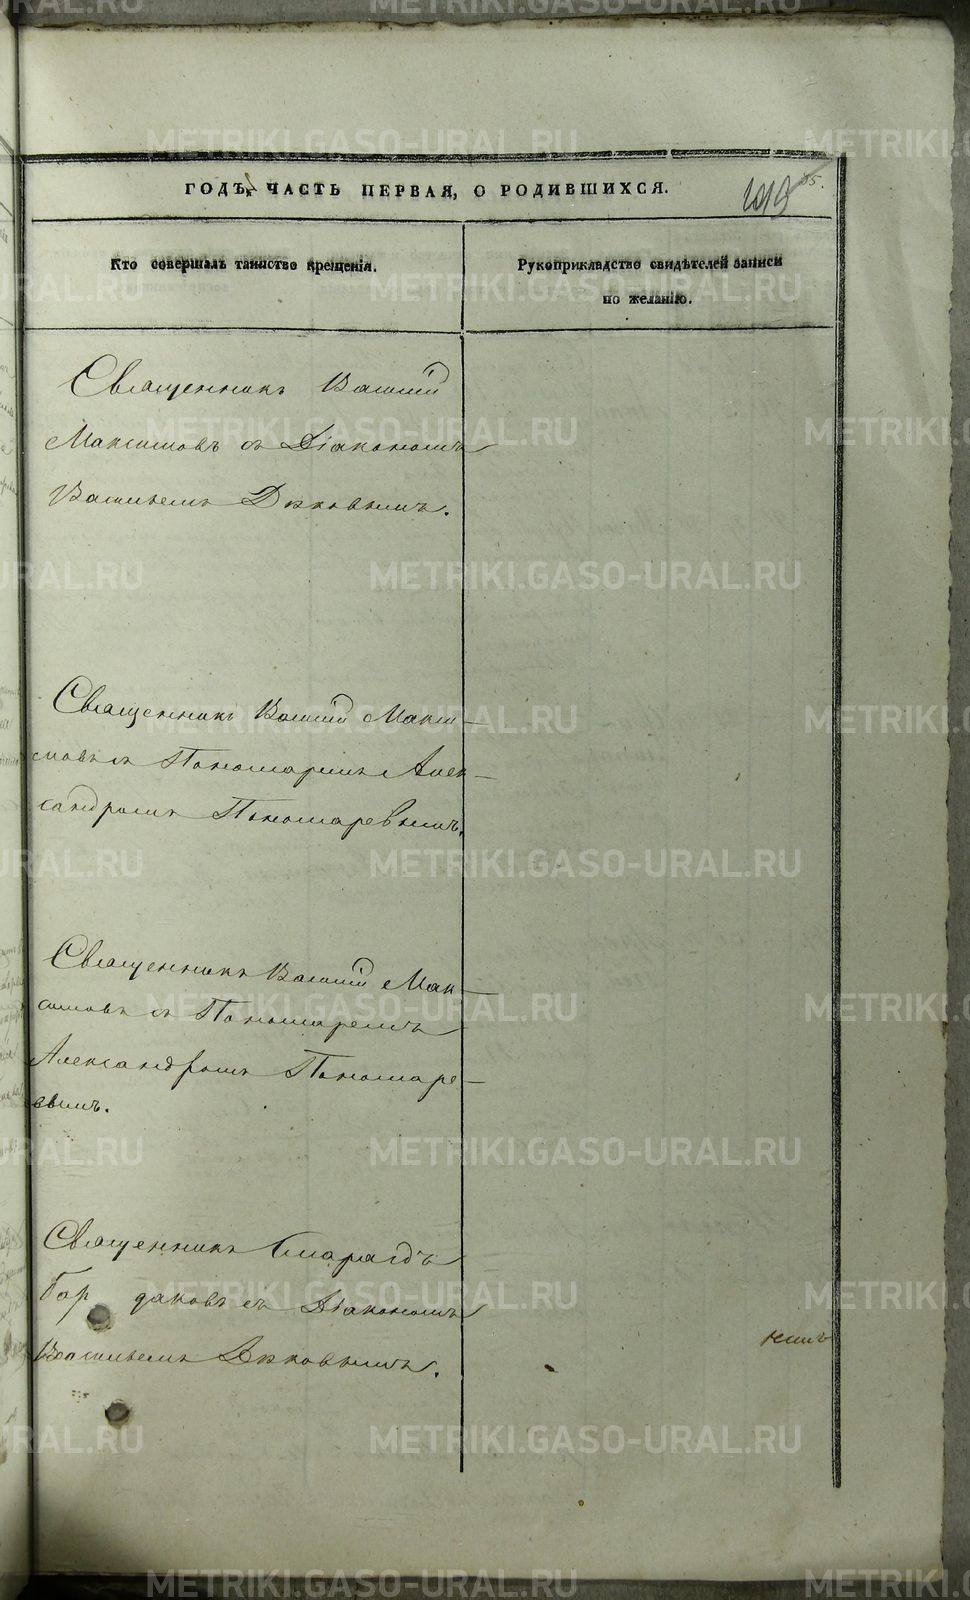 ГОДЪ, ЧАСТЬ ПЕРВАЯ, О РОДИВШИХСЯ.
Кто совершалъ таинство крещенія.
Рукоприкладство свидѣтелей записи
по желанію.
Священникъ Василій
Максимовъ съ Діакономъ
Васильемъ Дьяковымъ.
Священникъ Василій Макси-
мовъ съ Пономаремъ Алек-
сандромъ Пономаревымъ.
Священникъ Василій Мак-
симовъ съ Пономаремъ
Александромъ Пономаре-
вымъ.
Священникъ Смарагдъ
съ Діакономъ
Васильемъ Дьяковымъ.
METRIKI.GASO-URAL.RU